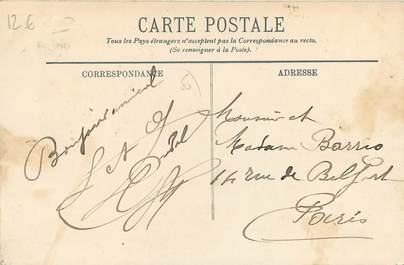 12€
CARTE POSTALE
Tous les Pays étrangers n'acceptent pas la Correspondance au recto.
(Se renseigner à la Poste).
CORRESPONDANCE
Bonjour amical
ADRESSE
Monsieur et
Madame Barrio
14 rue de Belfort
Paris